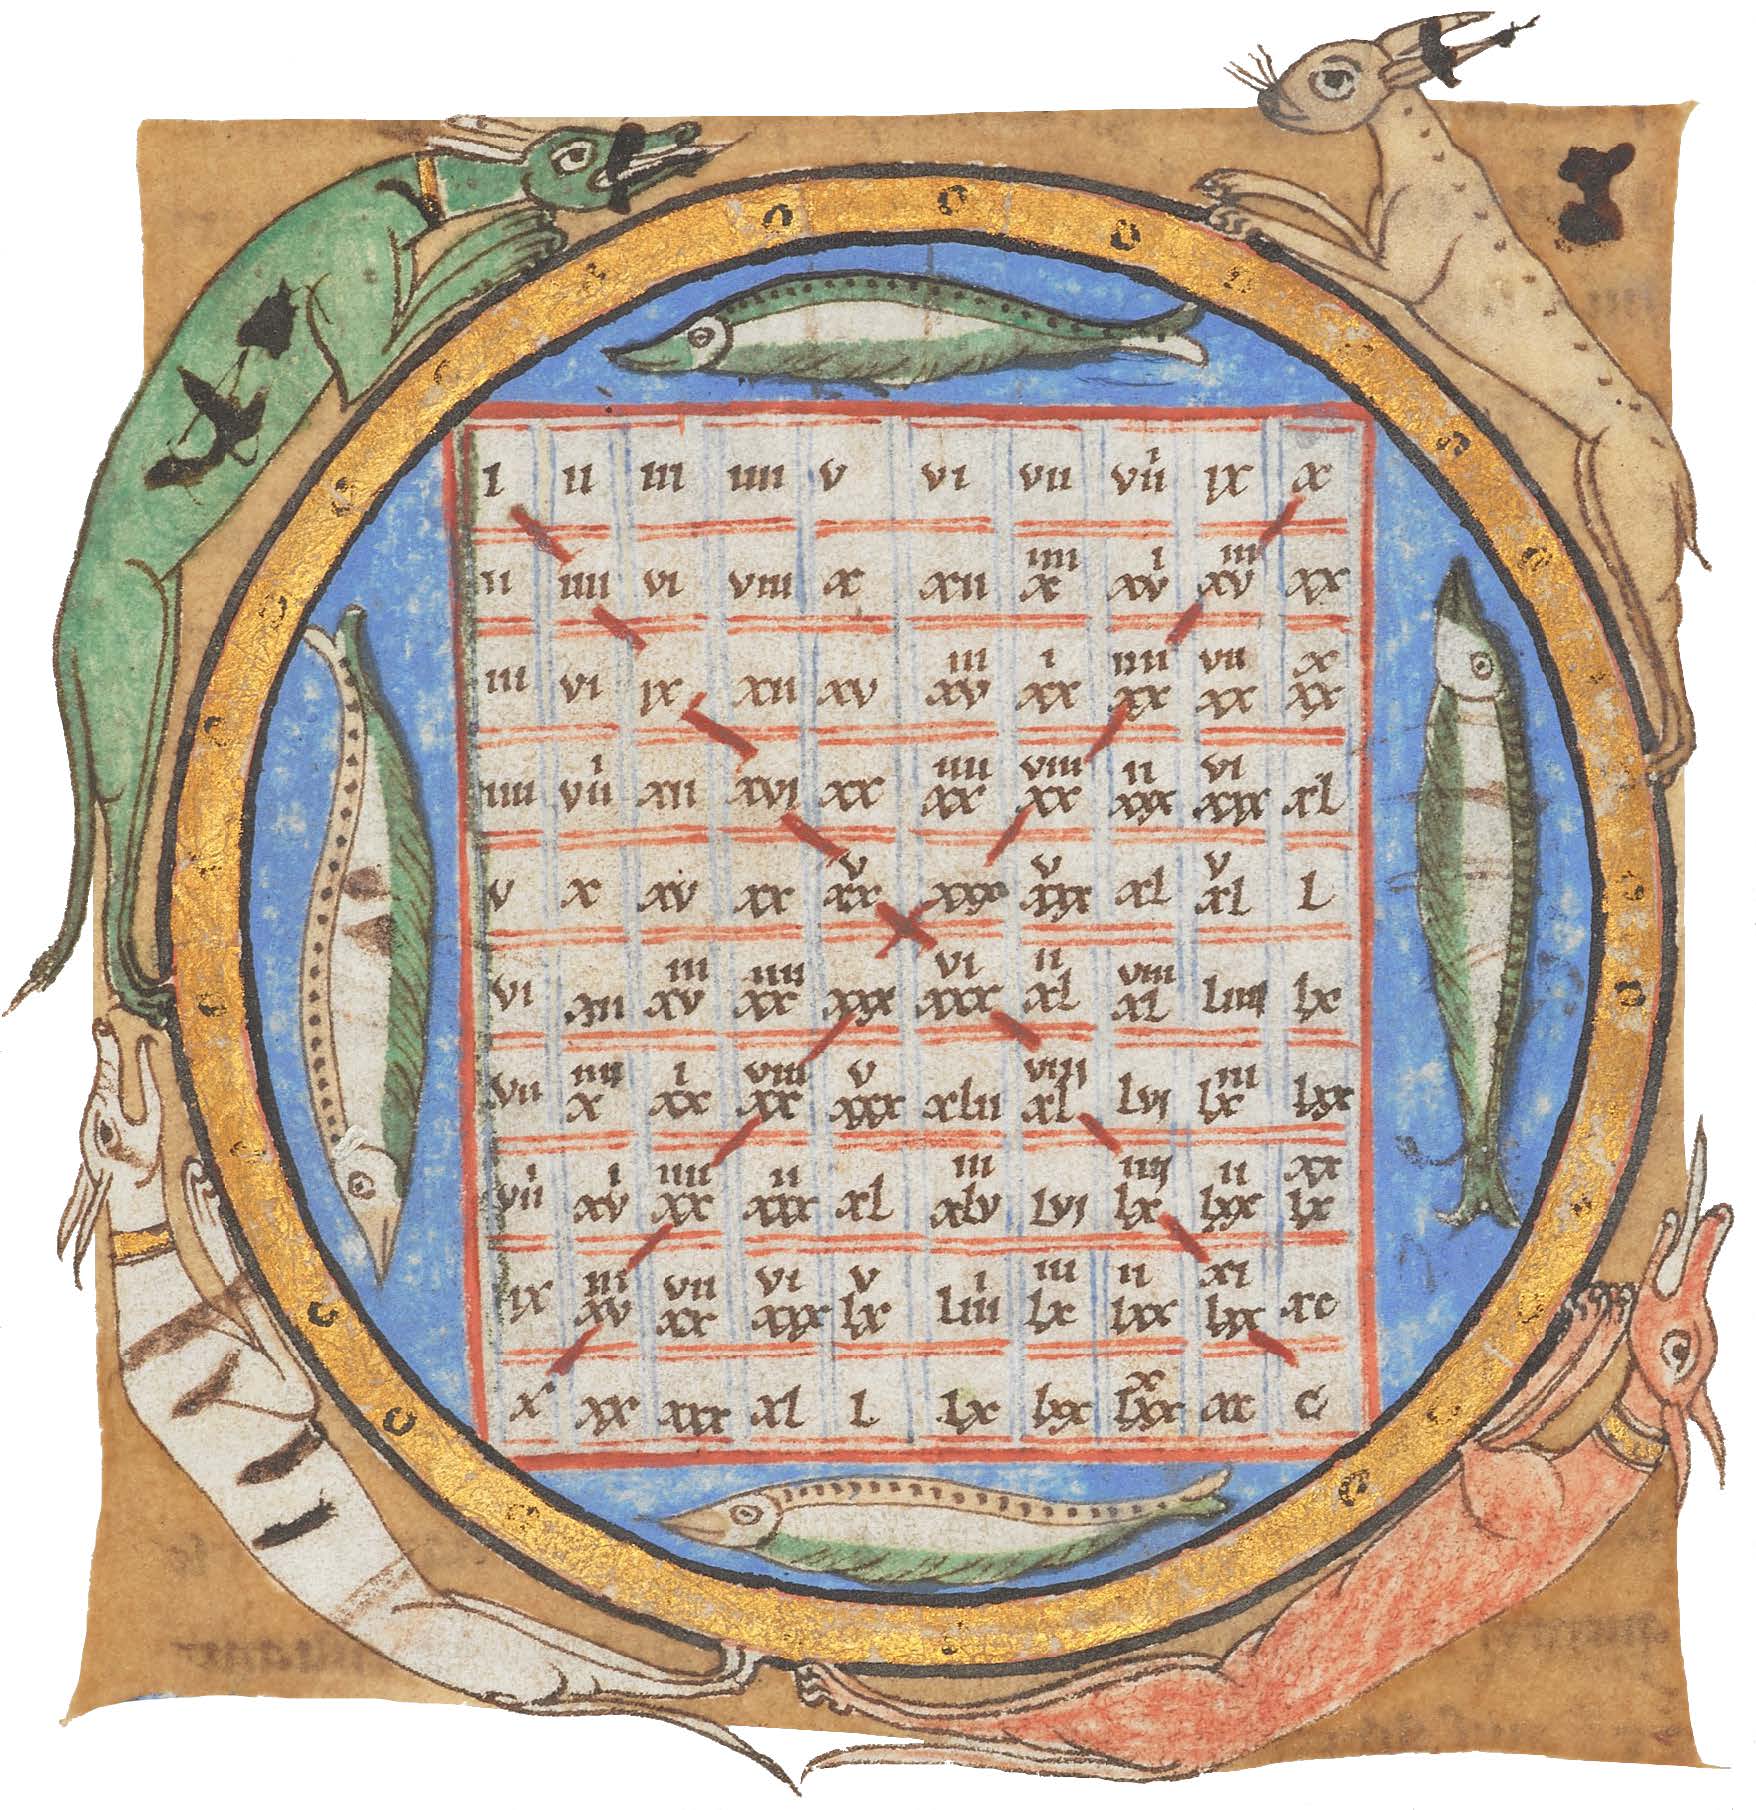 i ii iii iiii v vi vii vii i ix x
ii iiii vi viii x xii x iiii xv i xv iii xx
iii vi ix xii xv xv iii xx i xx iiii xx vii xx x
iiii vii i xii xvi xx xx iiii xx viii xxx ii xxx vi xl
v x xv xx xx v xxx xxx v xl xl v l
vi xii xv iii xx iiii xxx xxx vi xl ii xl viii liiii lx
vii x iiii xx i xx viii xxx v xlii xl viiii lvi lx iii lxx
vii i xv i xx iiii xxx ii xl xlv iii lvi lx iiii lxx ii lx xx
ix xv iii xx vii xxx vi lx v liii i lx iii lxx ii lxx xi xc
x xx xxx xl l lx lxx lxx x xc c